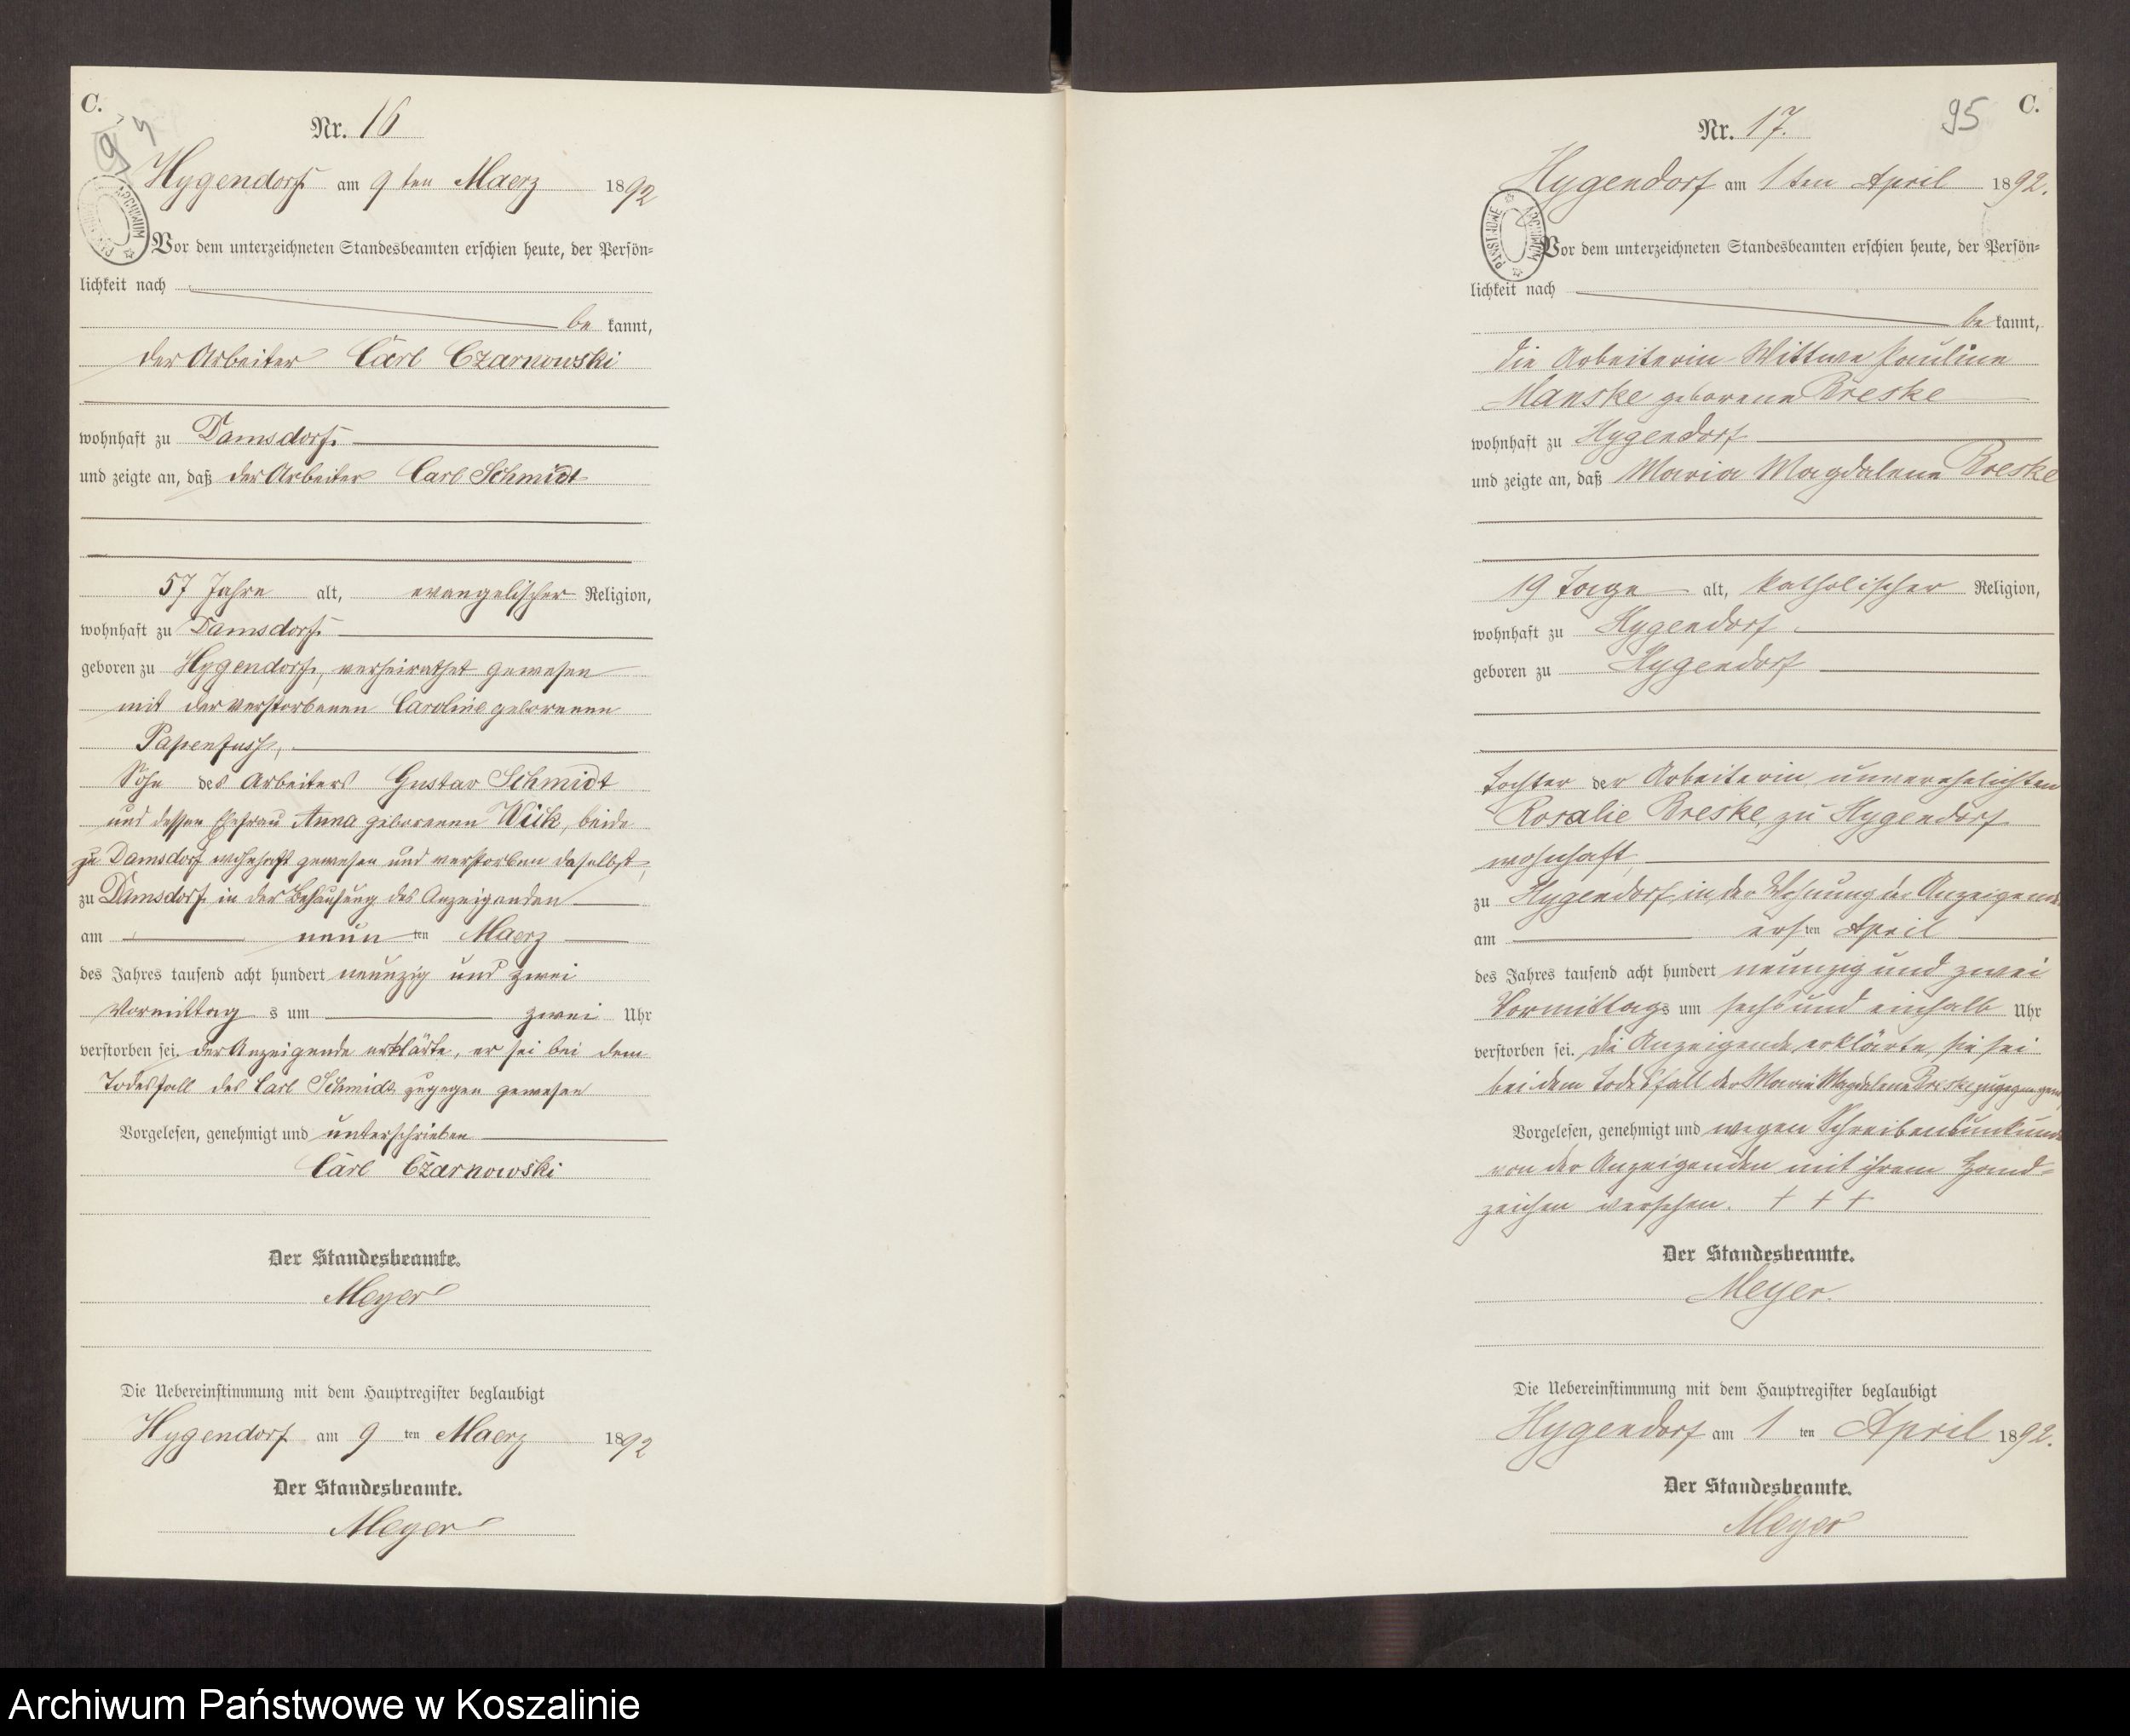 C.
94
Nr. 16
Hygendorf am 9ten Maerz 1892
Vor dem unterzeichneten Standesbeamten erschien heute, der Persön=
lichkeit nach
be kannt,
der Arbeiter Carl Czarnowski
wohnhaft zu Damsdorf
und zeigte an, daß der Arbeiter Carl Schmidt
57 Jahre alt, evangelischer Religion,
wohnhaft zu Damsdorf
geboren zu Hygendorf, verheirathet gewesen
mit der verstorbenen Caroline geborenen
Papenfuss,
Sohn des Arbeiters Gustav Schmidt
und dessen Ehefrau Anna geborenen Wick, beide
zu Damsdorf wohnhaft gewesen und verstorben daselbst,
zu Damsdorf in der Behausung des Anzeigenden
am neun ten Maerz
des Jahres tausend acht hundert neunzig und zwei
Vormittag s um zwei Uhr
verstorben sei. der Anzeigende erklärte, er sei bei dem
Todesfall des Carl Schmidt zugegen gewesen
Vorgelesen, genehmigt und unterschrieben
Carl Czarnowski
Der Standesbeamte.
Meyer
Die Uebereinstimmung mit dem Hauptregister beglaubigt
Hygendorf am 9 ten Maerz 1892
Der Standesbeamte.
Meyer
95 C.
Nr. 17.
Hygendorf am 1ten April 1892.
ARCHIWUM PAŃSTWOWE
Vor dem unterzeichneten Standesbeamten erschien heute, der Persön=
lichkeit nach
be kannt,
die Arbeiterin Wittwe Pauline
Manske geborene Breske
wohnhaft zu Hygendorf
und zeigte an, daß Maria Magdalena Breske
19 Tage alt, katholischer Religion,
wohnhaft zu Hygendorf
geboren zu Hygendorf
Tochter der Arbeiterin unverehelichten
Rosalie Breske, zu Hygendorf
wohnhaft,
zu Hygendorf, in der Wohnung der Anzeigende
am ers ten April
des Jahres tausend acht hundert neunzig und zwei
Vormittags um sechs und einhalb Uhr
verstorben sei. die Anzeigende erklärte, sie sei
bei dem Todesfall der Maria Magdalena Breske zugegen gew
Vorgelesen, genehmigt und wegen Schreibensunkunde
von der Anzeigenden mit ihrem Hand=
zeichen versehen. + + +
Der Standesbeamte.
Meyer.
Die Uebereinstimmung mit dem Hauptregister beglaubigt
Hygendorf am 1 ten April 1892.
Der Standesbeamte.
Meyer
Archiwum Państwowe w Koszalinie